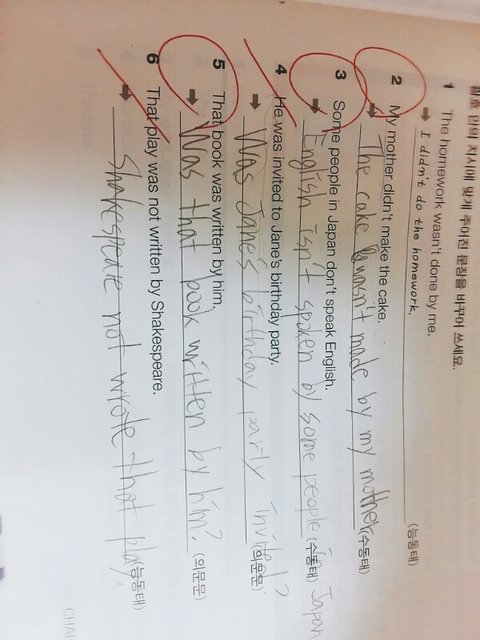 괄호 안의 지시에 맞게 주어진 문장을 바꾸어 쓰세요.
1 The homework wasn't done by me.
➡ I didn't do the homework. (능동태)
2 My mother didn't make the cake.
➡ The cake wasn't made by my mother (수동태)
3 Some people in Japan don't speak English.
➡ English isn't spoken by some people in Japan (수동태)
4 He was invited to Jane's birthday party.
➡ Was Jane's birthday party invited? (의문문)
5 That book was written by him.
➡ Was that book written by him? (의문문)
6 That play was not written by Shakespeare.
➡ Shakespeare not wrote that play. (능동태)